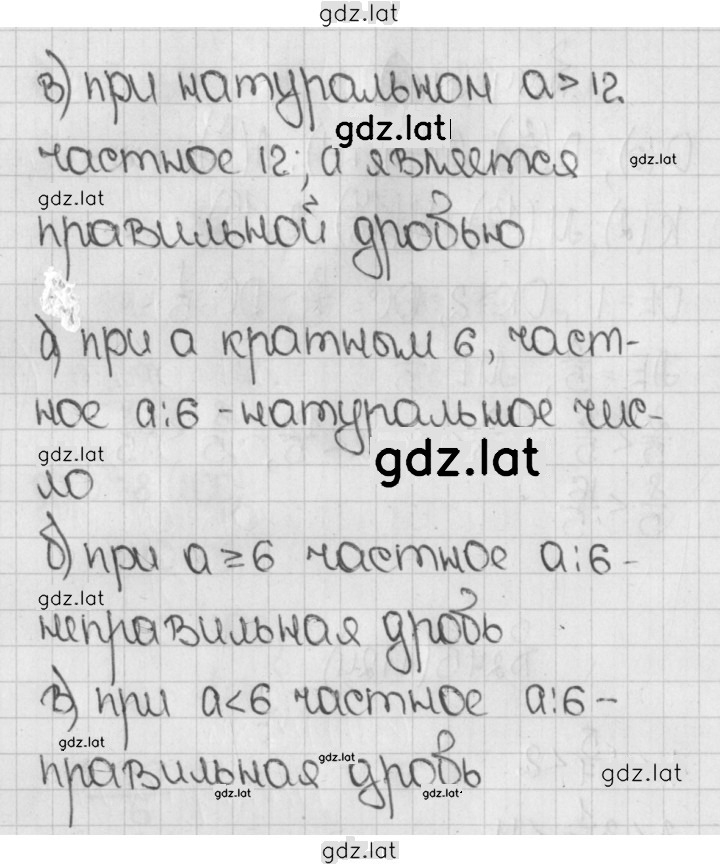 gdz.lat
в) при натуральном a > 12
gdz.lat
частное 12 : a является
gdz.lat
gdz.lat
правильной дробью
а) при a кратным 6, част-
ное a:6 - натуральное чис-
gdz.lat
gdz.lat
ло
б) при a ≥ 6 частное a:6 -
gdz.lat
неправильная дробь
в) при a < 6 частное a:6 -
gdz.lat
gdz.lat
правильная дробь
gdz.lat
gdz.lat
gdz.lat
gdz.lat